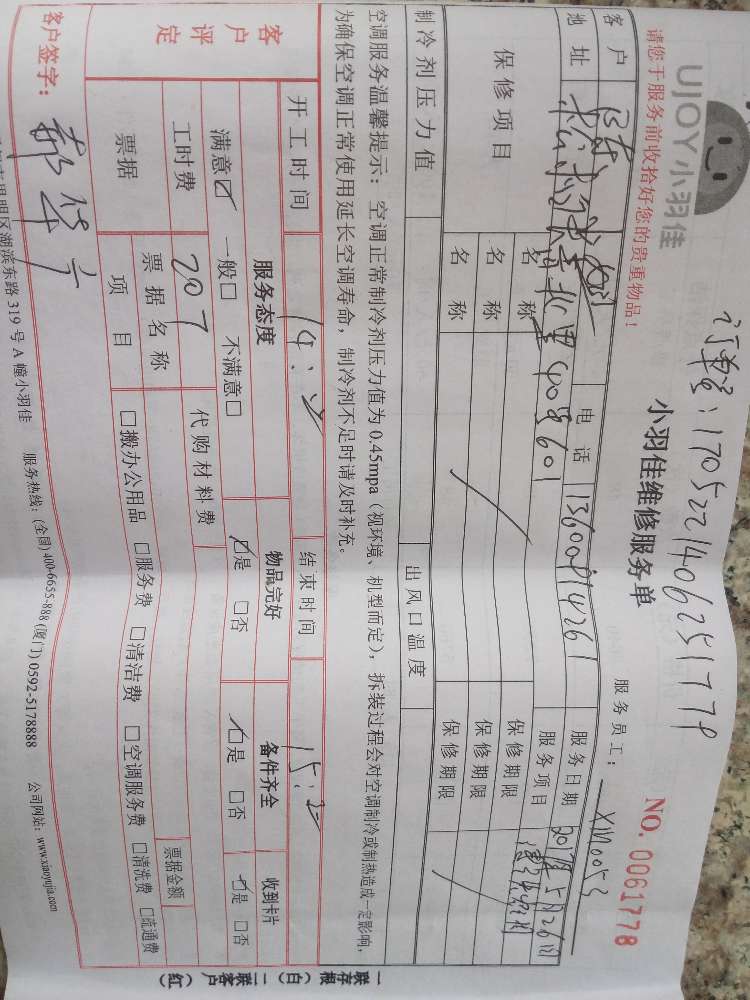 订单号:170522140625177P
UJOY小羽佳
小羽佳维修服务单
NO. 0061778
请您于服务前收拾好您的贵重物品!
服务员工: XM0053
客户 电话 服务日期 2017年5月26日
地址 服务项目
保修项目 名称 保修期限
名称 保修期限
名称 保修期限
制冷剂压力值 出风口温度
空调服务温馨提示: 空调正常制冷剂压力值为 0.45mpa(视环境、机型而定), 拆装过程会对空调制冷或制热造成一定影响,
为确保空调正常使用延长空调寿命, 制冷剂不足时请及时补充。
客户评定
开工时间 结束时间
服务态度 物品完好 备件齐全 收到卡片
满意☑ 一般□ 不满意□ ☑是 □否 ☑是 □否 ☑是 □否
工时费 207 代购材料费
票据 票据名称 票据金额
项目 □搬办公用品 □服务费 □清洁费 □空调服务费 □清洗费 □疏通费
客户签字:
湖滨东路 319 号 A 幢小羽佳 服务热线: (全国) 400-6655-888 (厦门) 0592-5178888 公司网站: www.xiaoyujia.com
一联存根(白) 二联客户(红)